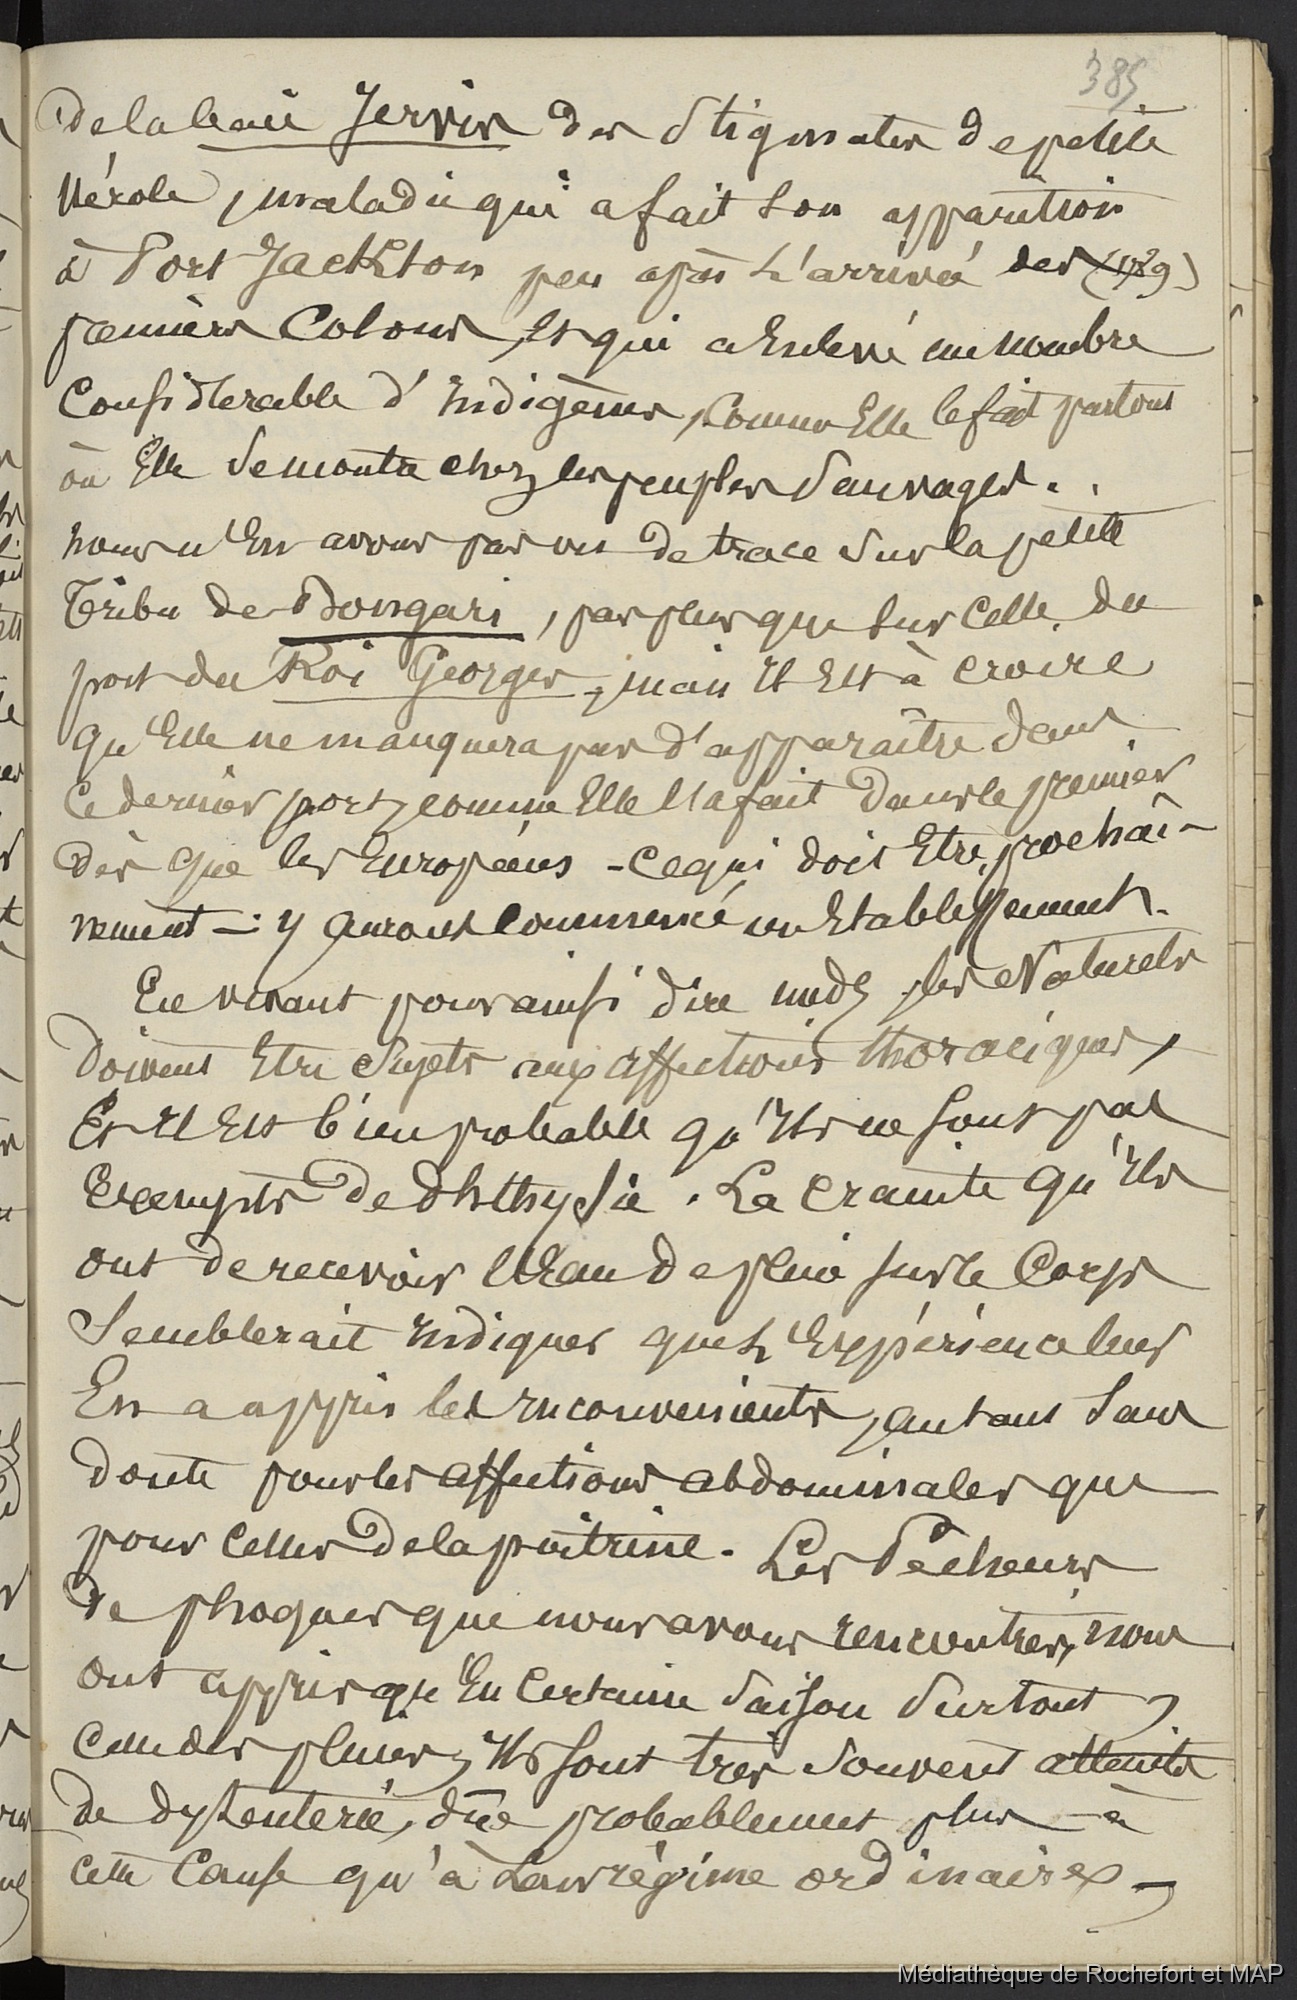 385
de la baie Jervis des Stigmates de petite
Vérole, maladie qui a fait Son apparition
à Port Jackson peu après L'arrivée des (1789)
premiers Colons, Et qui a Enlevé un nombre
Considérable d'Indigènes, Comme Elle le fait partout
où Elle Se montre chez les peuples Sauvages.
nous n'En avons pas vu de trace Sur la petite
Tribu de Bongari, pas plus que Sur Celle du
port du Roi Georges, mais Il Est à croire
qu'Elle ne manquera pas d'apparaître dans
Ce dernier port, comme Elle l'a fait dans le premier
dès que les Européens - Ce qui doit Etre prochai-
nement - y auront Commencé un Etablissement.
En vivant pour ainsi dire nuds, les Naturels
doivent Etre Sujets aux affections thoraciques,
Et Il Est bien probable qu'Ils ne Sont pas
Exempts de Phthysie. La crainte qu'Ils
ont de recevoir l'Eau de pluie sur le Corps
Semblerait Indiquer que L'Expérience leur
En a appris les Inconvenients, autant Sans
doute pour les affections abdominales que
pour Celles de la poitrine. Les Pêcheurs
de phoques que nous avons rencontrés, nous
ont appris que En Certaine Saison Surtout,
Celle des pluies, Ils Sont très Souvent atteints
de dyssenterie, dûe probablement plus à
cette Cause qu'à Leur régime ordinaire,
Médiathèque de Rochefort et MAP